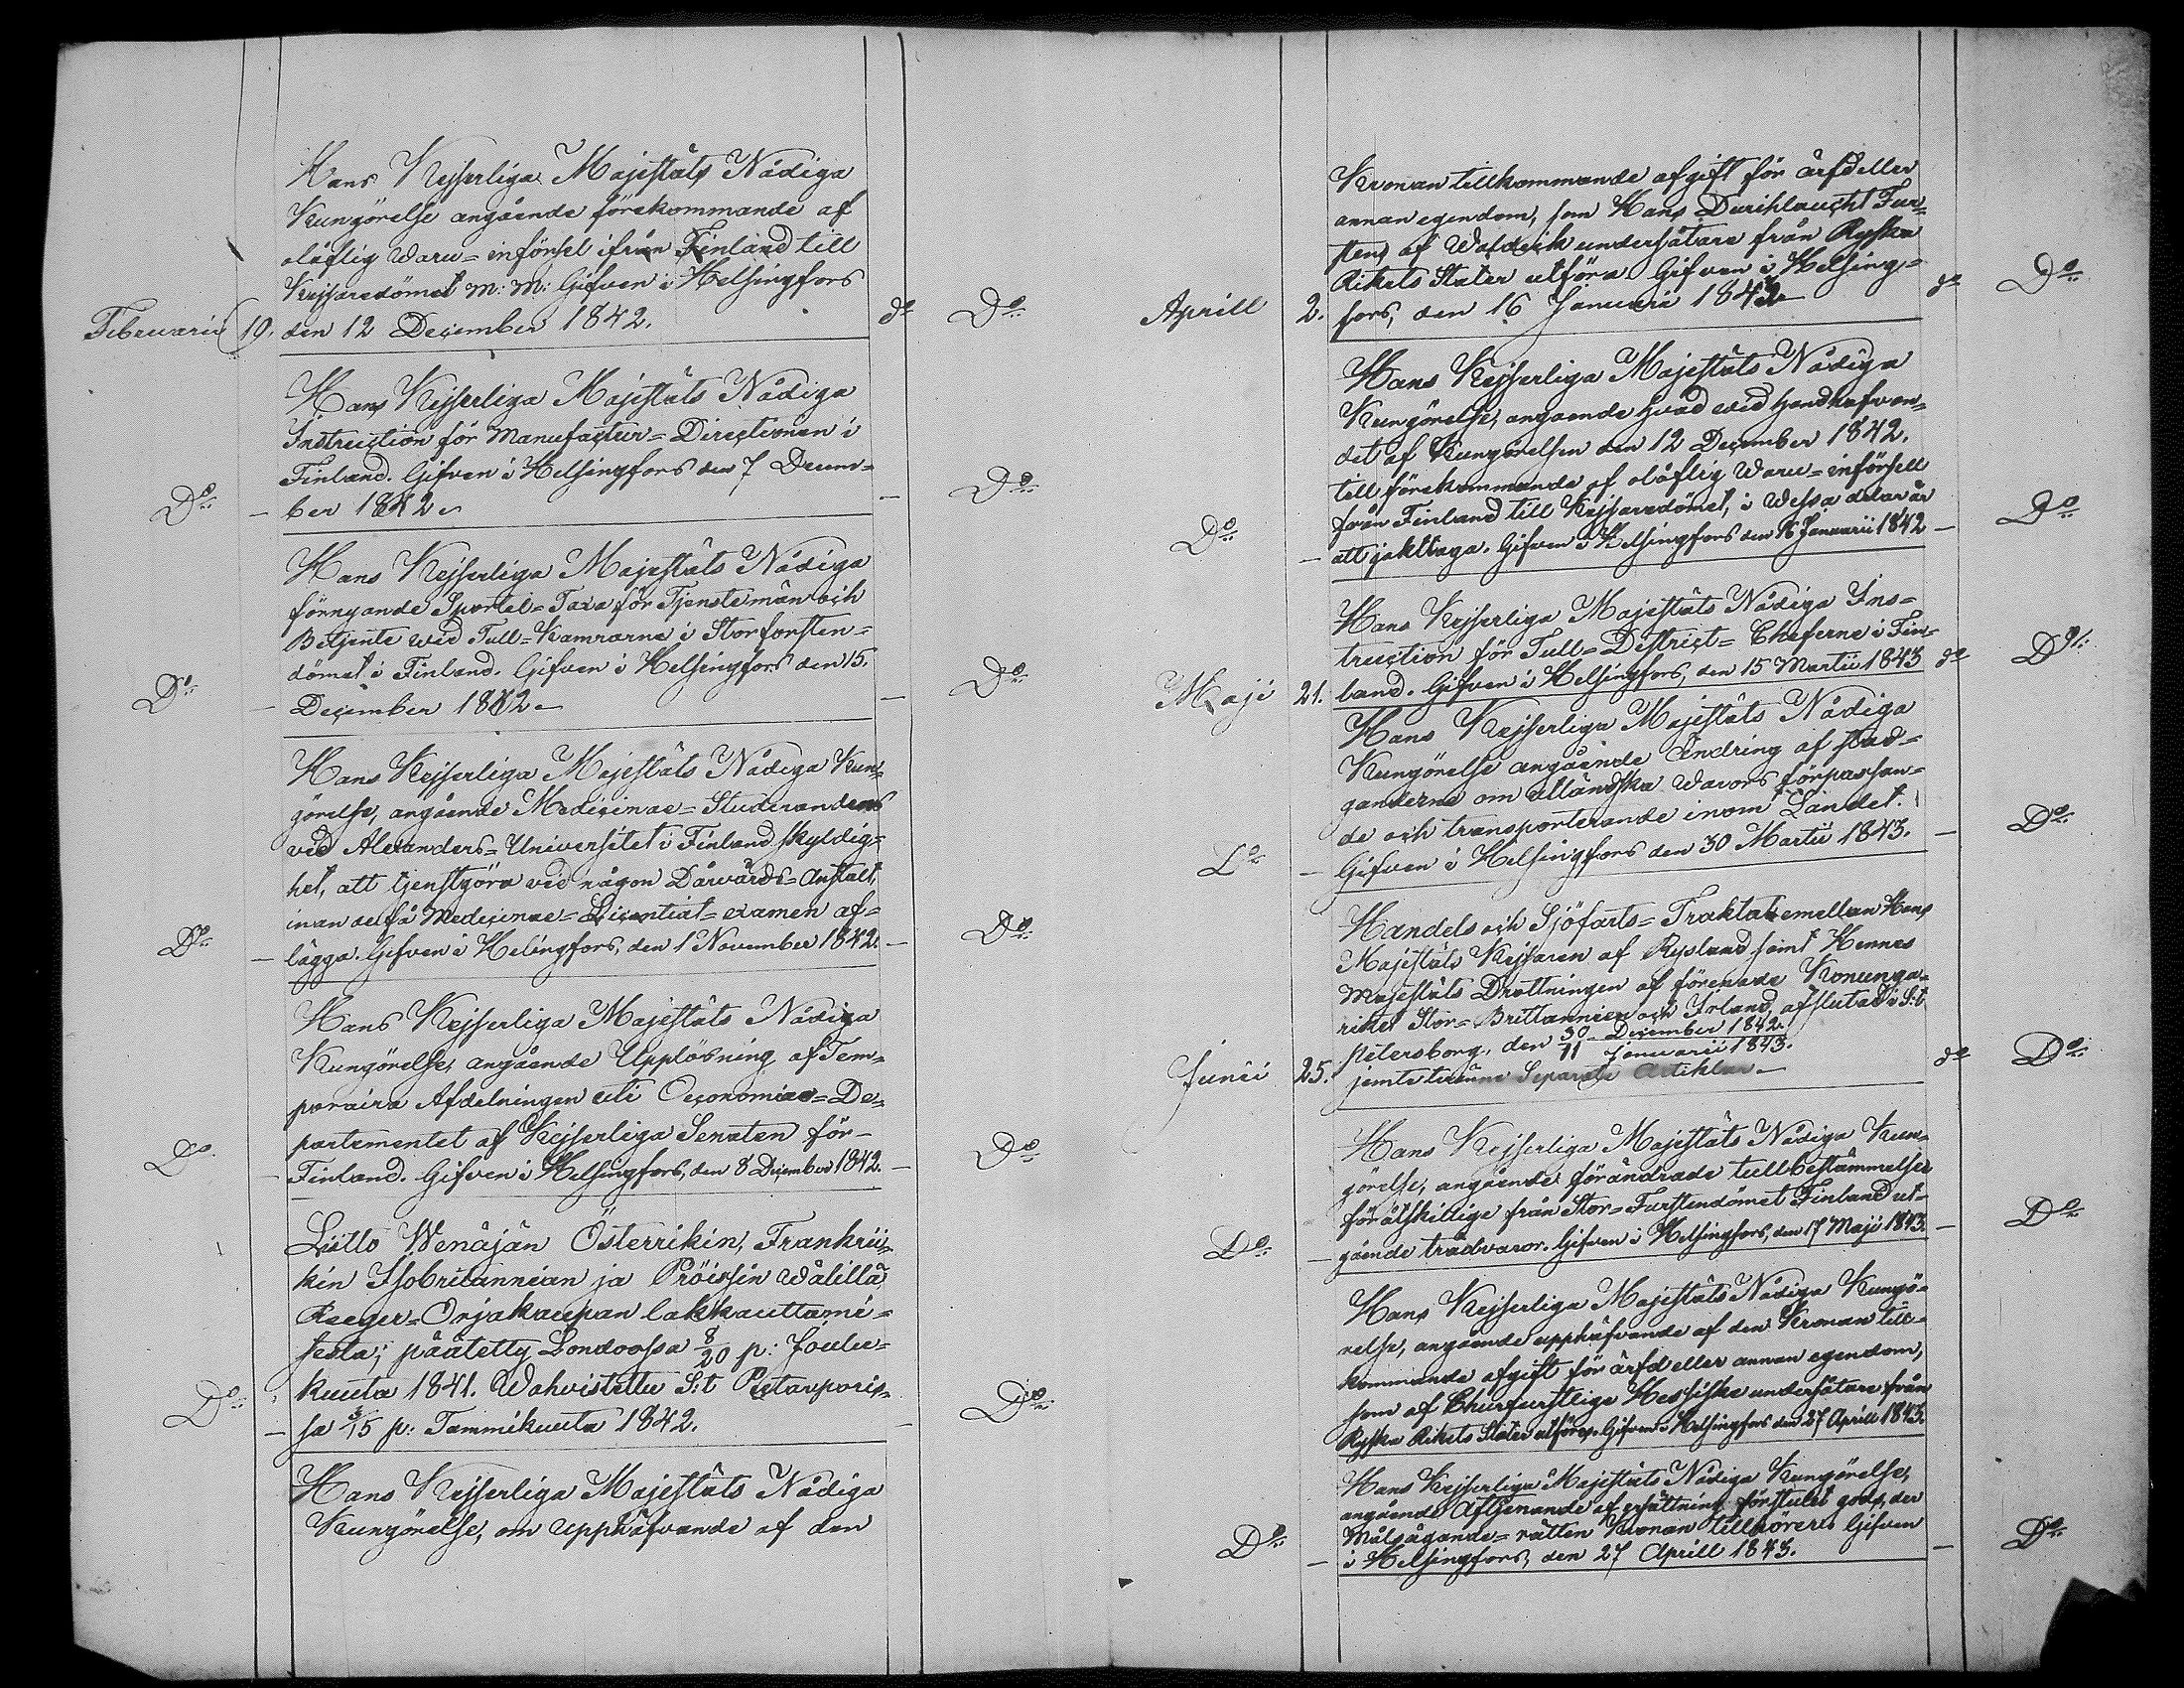 Hans Kejserliga Majestäts Nådiga
Kungörelse angående förekommande af
olåflig Waru=införsel ifrån Finland till
Kejsaredömet m: m: Gifven i Helsingfors
Februarii 19. den 12 December 1842. do Do
Hans Kejserliga Majestäts Nådiga
Instruction för Manufactur=Directionen i
Finland. Gifven i Helsingfors den 7 Decem=
Do — ber 1842. — Do
Hans Kejserliga Majestäts Nådiga
förnyande Sportel=Taxa för Tjenstemän och
Betjente wid Tull=Kamrarne i Storfursten=
dömet i Finland. Gifven i Helsingfors den 15.
Do — December 1842. — Do
Hans Kejserliga Majestäts Nådiga Kun=
görelse, angående Medicinae=Studerandens
vid Alexanders=Universitet i Finland skyldig=
het, att tjenstgöra vid någon Dårvårds=Anstalt,
innan de få Medicinae=Licentiat=examen af=
Do — lägga. Gifven i Helsingfors, den 1 November 1842. — Do
Hans Kejserliga Majestäts Nådiga
Kungörelse, angående Upplösning af Tem=
poraira Afdelningen uti Oeconomiae=De=
partementet af Kejserliga Senaten för
Do — Finland. Gifven i Helsingfors, den 8 December 1842. — Do
Liitto Wenäjän Österrikin, Frankrii=
kin Isobritannian ja Pröissin wälillä
Neeger=Orjakaupan lakkauttami=
sesta; päätetty Londoossa 8/20 p: Joulu=
kuuta 1841. Wahvistettu S:t Pietarporis=
Do — sa 3/15 p: Tammikuuta 1842. — Do
Hans Kejserliga Majestäts Nådiga
Kungörelse, om upphäfvande af den
Kronan tillkommande afgift för ärfd eller
annan egendom, som Hans Durchlaucht Fur=
stens af Waldeck undersåtare från Ryska
Rikets Stater utföra. Gifven i Helsing=
Aprill 2. fors, den 16 Januari 1842 do Do
Hans Kejserliga Majestäts Nådiga
Kungörelse, angående hvad wid handhafvan=
det af Kungörelsen den 12 December 1842.
till förekommande af olåflig Waru=införsell
från Finland till Kejsaredömet, i wissa delar är
Do — att jakttaga. Gifven i Helsingfors den 16 Januarii 1842 — Do
Hans Kejserliga Majestäts Nådiga Ins=
truction för Tull=District=Cheferne i Fin=
Maji 21. land. Gifven i Helsingfors, den 15 Martii 1843 do Do
Hans Kejserliga Majestäts Nådiga
Kungörelse angående Ändring af stad=
ganderne om utländska Warors förpassan=
de och transporterande inom Landet.
Do — Gifven i Helsingfors den 30 Martii 1843. — Do
Handels och Sjöfarts=Traktat emellan Hans
Majestäts Kejsaren af Ryssland samt Hennes
Majestäts Drottningen af förenade Konunga=
riket Stor=Brittannien och Irland, afslutad i S:t
Petersborg, den 30 December 1842. / 11 Januarii 1843.
Junii 25. jemte tvenne Separate Artiklar — do Do
Hans Kejserliga Majestäts Nådiga Kun=
görelse, angående förändrade tullbestämmelser
för åtskillige från Stor=Furstendömet Finland ut=
Do — gående trädvaror. Gifven i Helsingfors, den 17 Maji 1843. — Do
Hans Kejserliga Majestäts Nådiga Kungö=
relse, angående upphäfvande af den Kronan till=
kommande afgift för ärfd eller annan egendom,
som af Churfurstlige Hessiske undersåtare från
Ryska Rikets Stater utföres. Gifven i Helsingfors den 27 Aprill 1843.
Hans Kejserliga Majestäts Nådiga Kungörelse,
angående Aftjenande af ersättning för stulet gods, der
Målsägande=rätten Kronan tillhörer. Gifven
Do — i Helsingfors, den 27 Aprill 1843. — Do